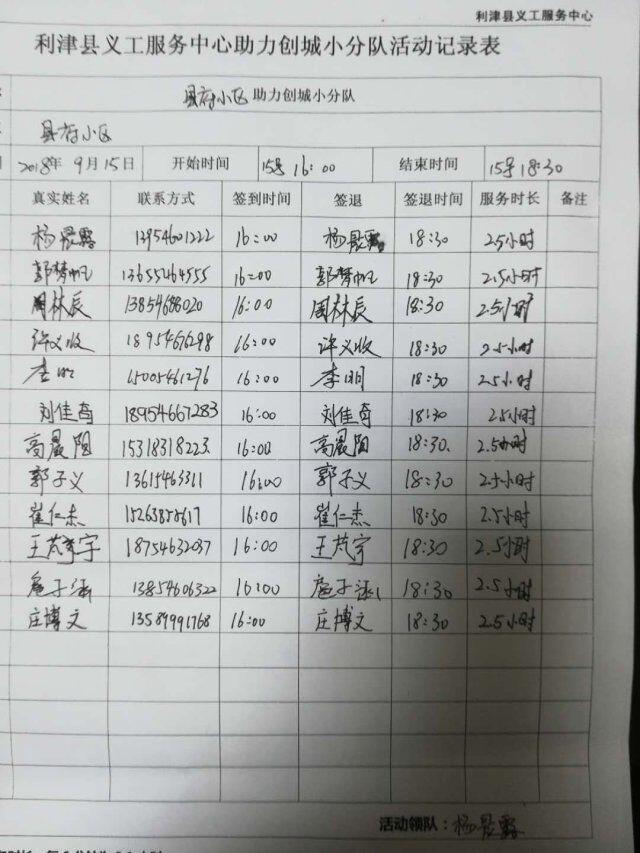 利津县义工服务中心
利津县义工服务中心助力创城小分队活动记录表
县府小区 助力创城小分队
县府小区
2018年 9月15日 开始时间 15号 16:00 结束时间 15号 18:30
真实姓名 联系方式 签到时间 签退 签退时间 服务时长 备注
杨晨露 13954601222 16:00 杨晨露 18:30 2.5小时
郭梦帆 13655464555 16:00 郭梦帆 18:30 2.5小时
周林辰 13854686020 16:00 周林辰 18:30 2.5小时
许义收 18954676298 16:00 许义收 18:30 2.5小时
李明 15005461276 16:00 李明 18:30 2.5小时
刘佳奇 18954667283 16:00 刘佳奇 18:30 2.5小时
高晨阳 15318318223 16:00 高晨阳 18:30. 2.5小时
郭子义 13615463311 16:00 郭子义 18:30 2.5小时
崔仁杰 15263855617 16:00 崔仁杰 18:30 2.5小时
王芃宇 18754632037 16:00 王芃宇 18:30 2.5小时
扈子涵 13854606322 16:00 扈子涵 18:30 2.5小时
庄博文 13589991768 16:00 庄博文 18:30 2.5小时
活动领队：杨晨露